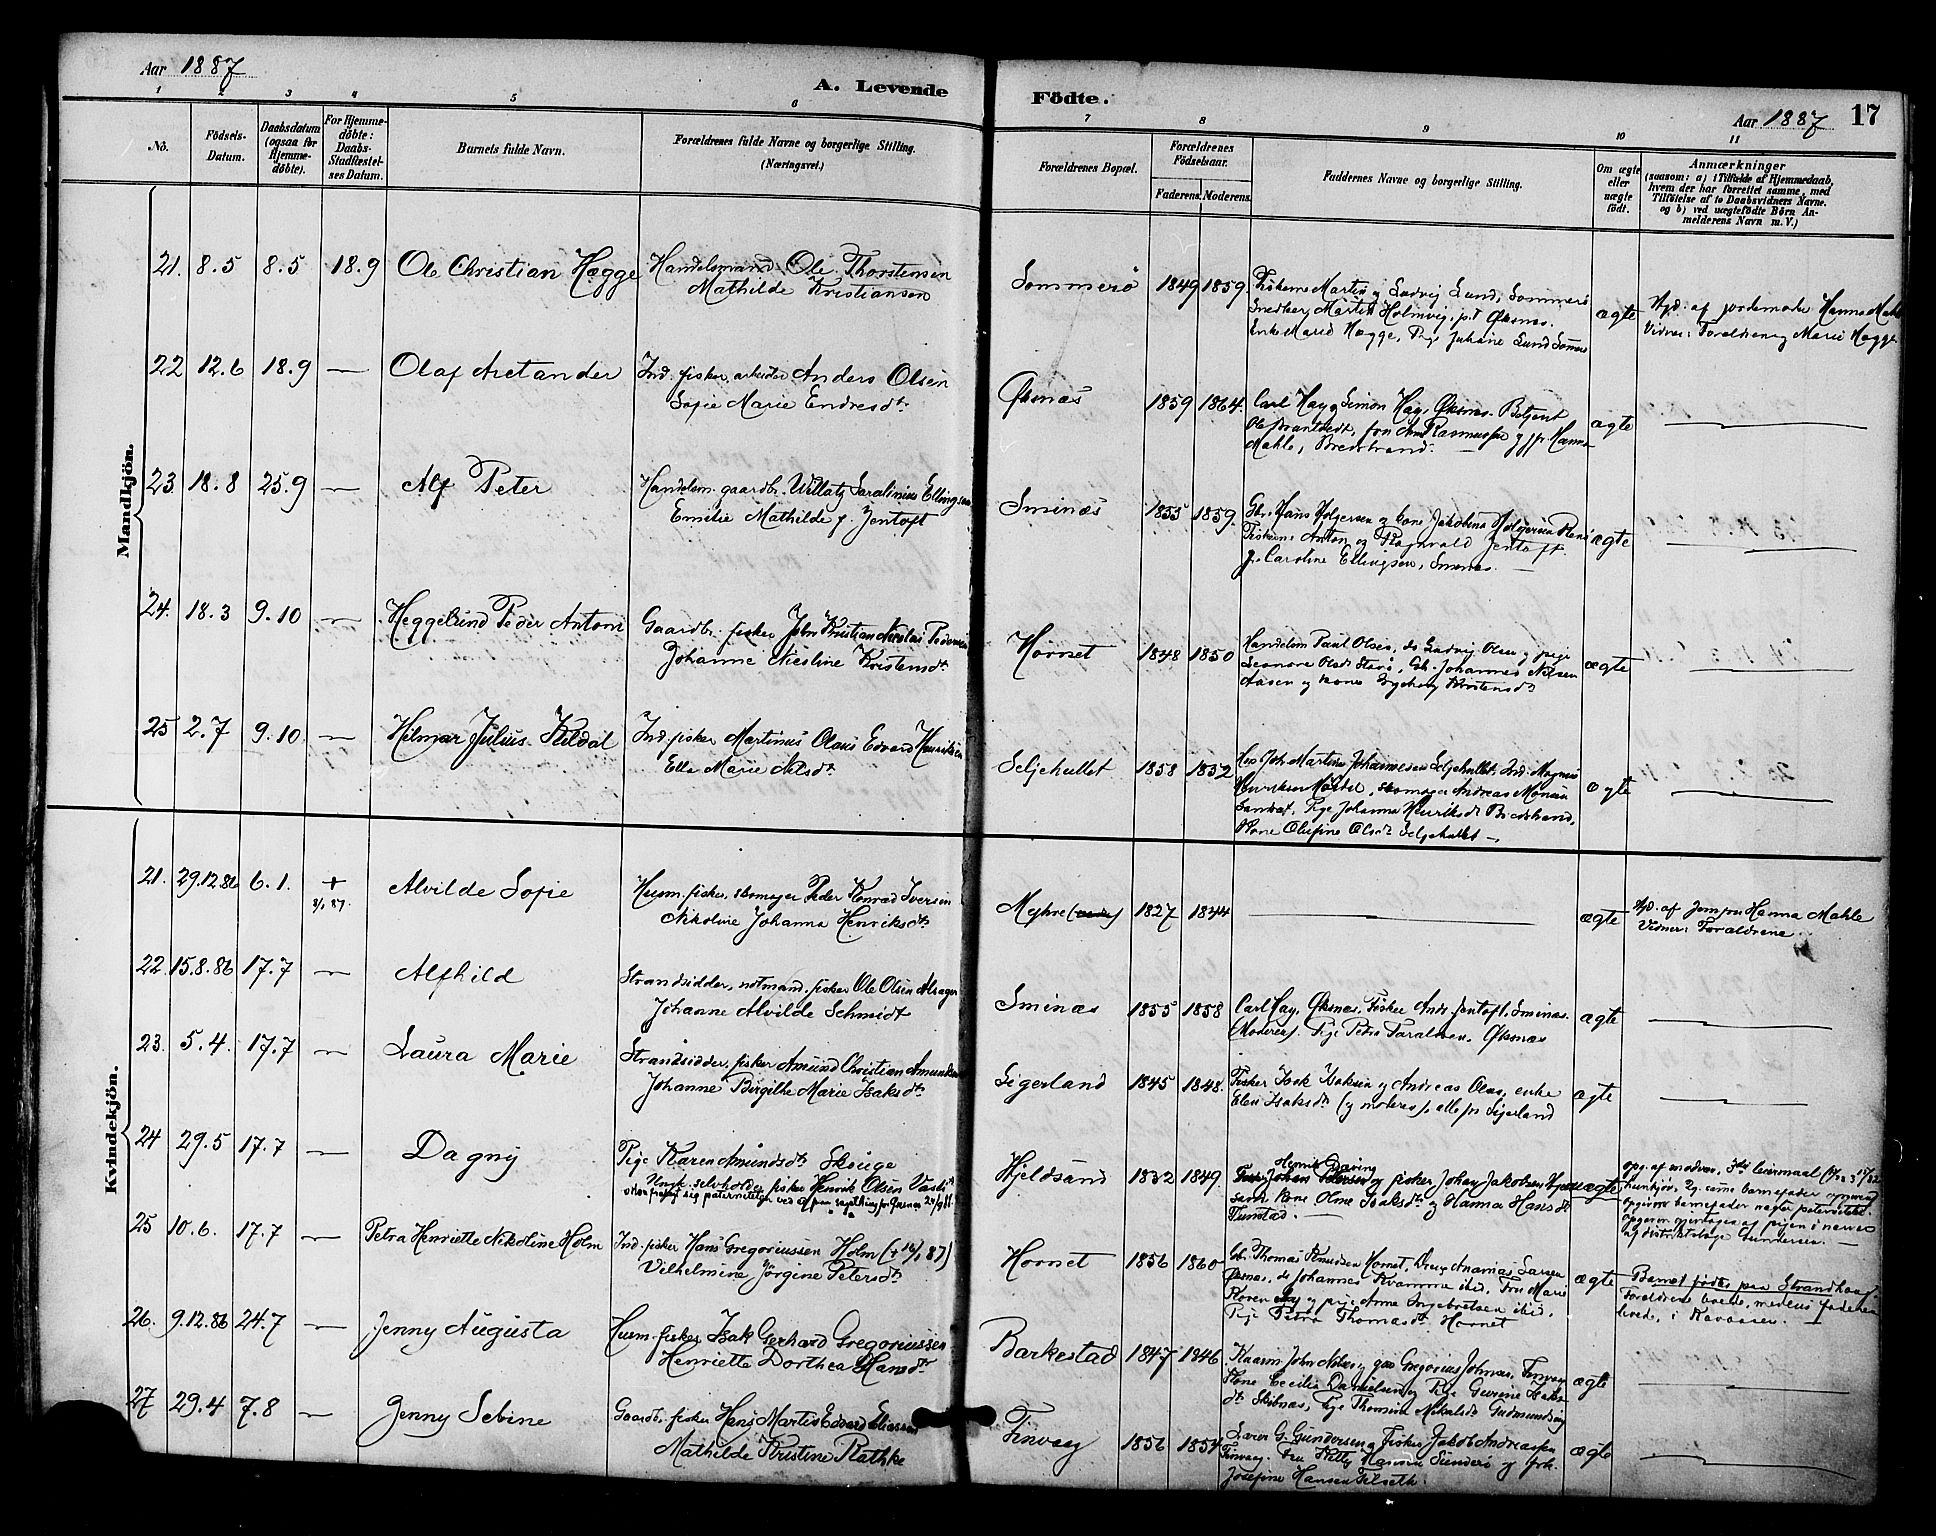 Aar 1887
A. Levende Födte.
Aar 1887 17
1 2 3 4 5 6 7 8 9 10 11
No.
Födsels-Datum.
Daabsdatum (ogsaa for Hjemme-döbte).
For Hjemme-döbte: Daabs-Stadfæstel-ses Datum.
Barnets fulde Navn.
Forældrenes fulde Navne og borgerlige Stilling.
(Næringsvei.)
Forældrenes Bopæl.
Forældrenes Födselsaar.
Faderens. Moderens.
Faddernes Navne og borgerlige Stilling.
Om ægte eller uægte födt.
Anmærkninger
(saasom: a) i Tilfælde af Hjemmedaab,
hvem der har forrettet samme, med
Tilföielse af to Daabsvidners Navne.
og b) ved uægtefödte Börn An-
melderens Navn m. V.)
Mandkjön.
21. 8.5 8.5 18.9 Ole Christian Hægge Handelsmand Ole Thorstensen
Mathilde Kristiansen
Sommerö 1849 1859 Fiskerne Martin og Ludvig Lund, Sommerö
Snedker Martin Holmvig, p.t. Øksnes.
Enke Marie Hægge, Pige Juhane Lund Sommerö
ægte Hjd. af jordemoder Hanna Mahle
Vidner: Forældrene og Marie Hægge
22 12.6 18.9 — Olaf Aretander Ind. fisker, arbeider Anders Olsen
Sofie Marie Endresdtr
Øksnæs 1859 1864. Carl Hay og Simon Hay, Øksnes. Betjent
Mahle, Bredstrand.
ægte —
23 18.8 25.9 — Alf Peter Handelsm. gaardbr. Willatz Saralinius Ellingsen
Emilie Mathilde f. Jentoft
Sminæs 1855 1859. Gbr. Hans Holgersen og kone Jakobina Holgersen
Fiskerne Anton og Ragnvald Jentoft.
p. Caroline Ellingsen, Sminæs. —
ægte —
24. 18.3 9.10 — Heggelund Peder Antoni Gaardbr. fisker John Kristian Nicolai Pedersen
Johanne Nicoline Kristensdtr
Hornet 1848 1850 Handelsm Paul Olsen, do Ludvig Olsen og pige
Leonore Olsdtr Stavö, Gbr. Johannes Nilsen
Aasen og kone Ingeborg Kristensdtr
ægte —
25 2.7 9.10 — Hilmar Julius Kildal Ind. fisker Martinus Olaus Edvard Henriksen
Elle Marie Nilsdtr
Seljehullet 1858 1852 Martin Johannesen Seljehullet. Ind. Magnus
Henriksen skomager Andreas Monsen
Pige Johanna Henriksdtr Bredstrand,
Kone Olufine Olsdtr Seljehullet —
ægte —
Kvindekjön.
21. 29.12.86 6.1. + 8/1 87. Alvilde Sofie Husm. fisker, skomager Peder Konrad Iversen
Nikoline Johanna Henriksdtr
Myhre 1827 1844 — ægte Hjd. af Jomfru Hanna Mahle
Vidner: Forældrene.
22. 15.8.86 17.7 — Alfhild Strandsidder, notmand, fisker Ole Olsen Alsager
Johanne Alvilde Schmidt
Sminæs 1855 1858 Carl Hay, Øksnæs, Fisker Andr. Jentoft, Sminæs.
Moderen. Pige Petra Taraldsen, Øksnæs
ægte —
23. 5.4. 17.7 — Laura Marie Strandsidder, fisker Amund Christian Amundsen
Johanne Birgithe Marie Isaksdtr
Sigerland 1845 1848. Fisker Isak Isaksen og Andreas Olsen, enke
Elen Isaksdtr (og moderen), alle fr Sigerland
ægte —
24 29.5 17.7 — Dagny Pige Karen Amundsdtr Skouge
Ungk. selvholder, fisker Henrik Olsen
Hjeldsand 1832 1849. Henrik
og fisker Johan Jakobsen
samt kone Oline Isaksdtr og Hanna Hansdtr
Tunstad. —
uægte opg. af moderen, 3die leiermaal
opgivne barnefader nægter paterniteten
af distriktslæge Gundersen. —
25 10.6. 17.7 — Petra Henriette Nikoline Holm Ind. fisker Hans Gregoriussen Holm (+ 16/1 87)
Vilhelmine Jörgine Petersdtr
Hornet 1856 1860 Gbr. Thomas Knudsen Hornet, Dreng Ananias Larsen
Øksnæs, do Johannes Kvamme ibid, Fru Marie
og pige Anne Ingebretsen ibid,
Pige Petra Thomasdtr Hornet
ægte Barnet fødtes paa Strandhaug.
Forældrene boede, medens faderen
levede, i Kavaasen.
26. 9.12.86 24.7 — Jenny Augusta Husm. fisker Isak Gerhard Gregoriussen
Henriette Dorthea Hansdtr
Barkestad 1847 1846. Kaarm John Nilsen, Gregorius Johnsen, Finvaag
Kone Cecilie Danielsen og Pige Gurine Isaks-
dtr Skibnæs, Pige Thomine Nikolaidtr Gudmundsøy
ægte —
27 29.4 7.8 — Jenny Sebine Gaardbr. fisker Hans Martin Edvard Eliassen
Mathilde Kristine Rathke
Finvaag 1856 1854 Lærer G. Gundersen og Fisker Jakob Andreassen
Finvaag. Fru Hansen Sunderö og frk.
Josefine Hansen
ægte —